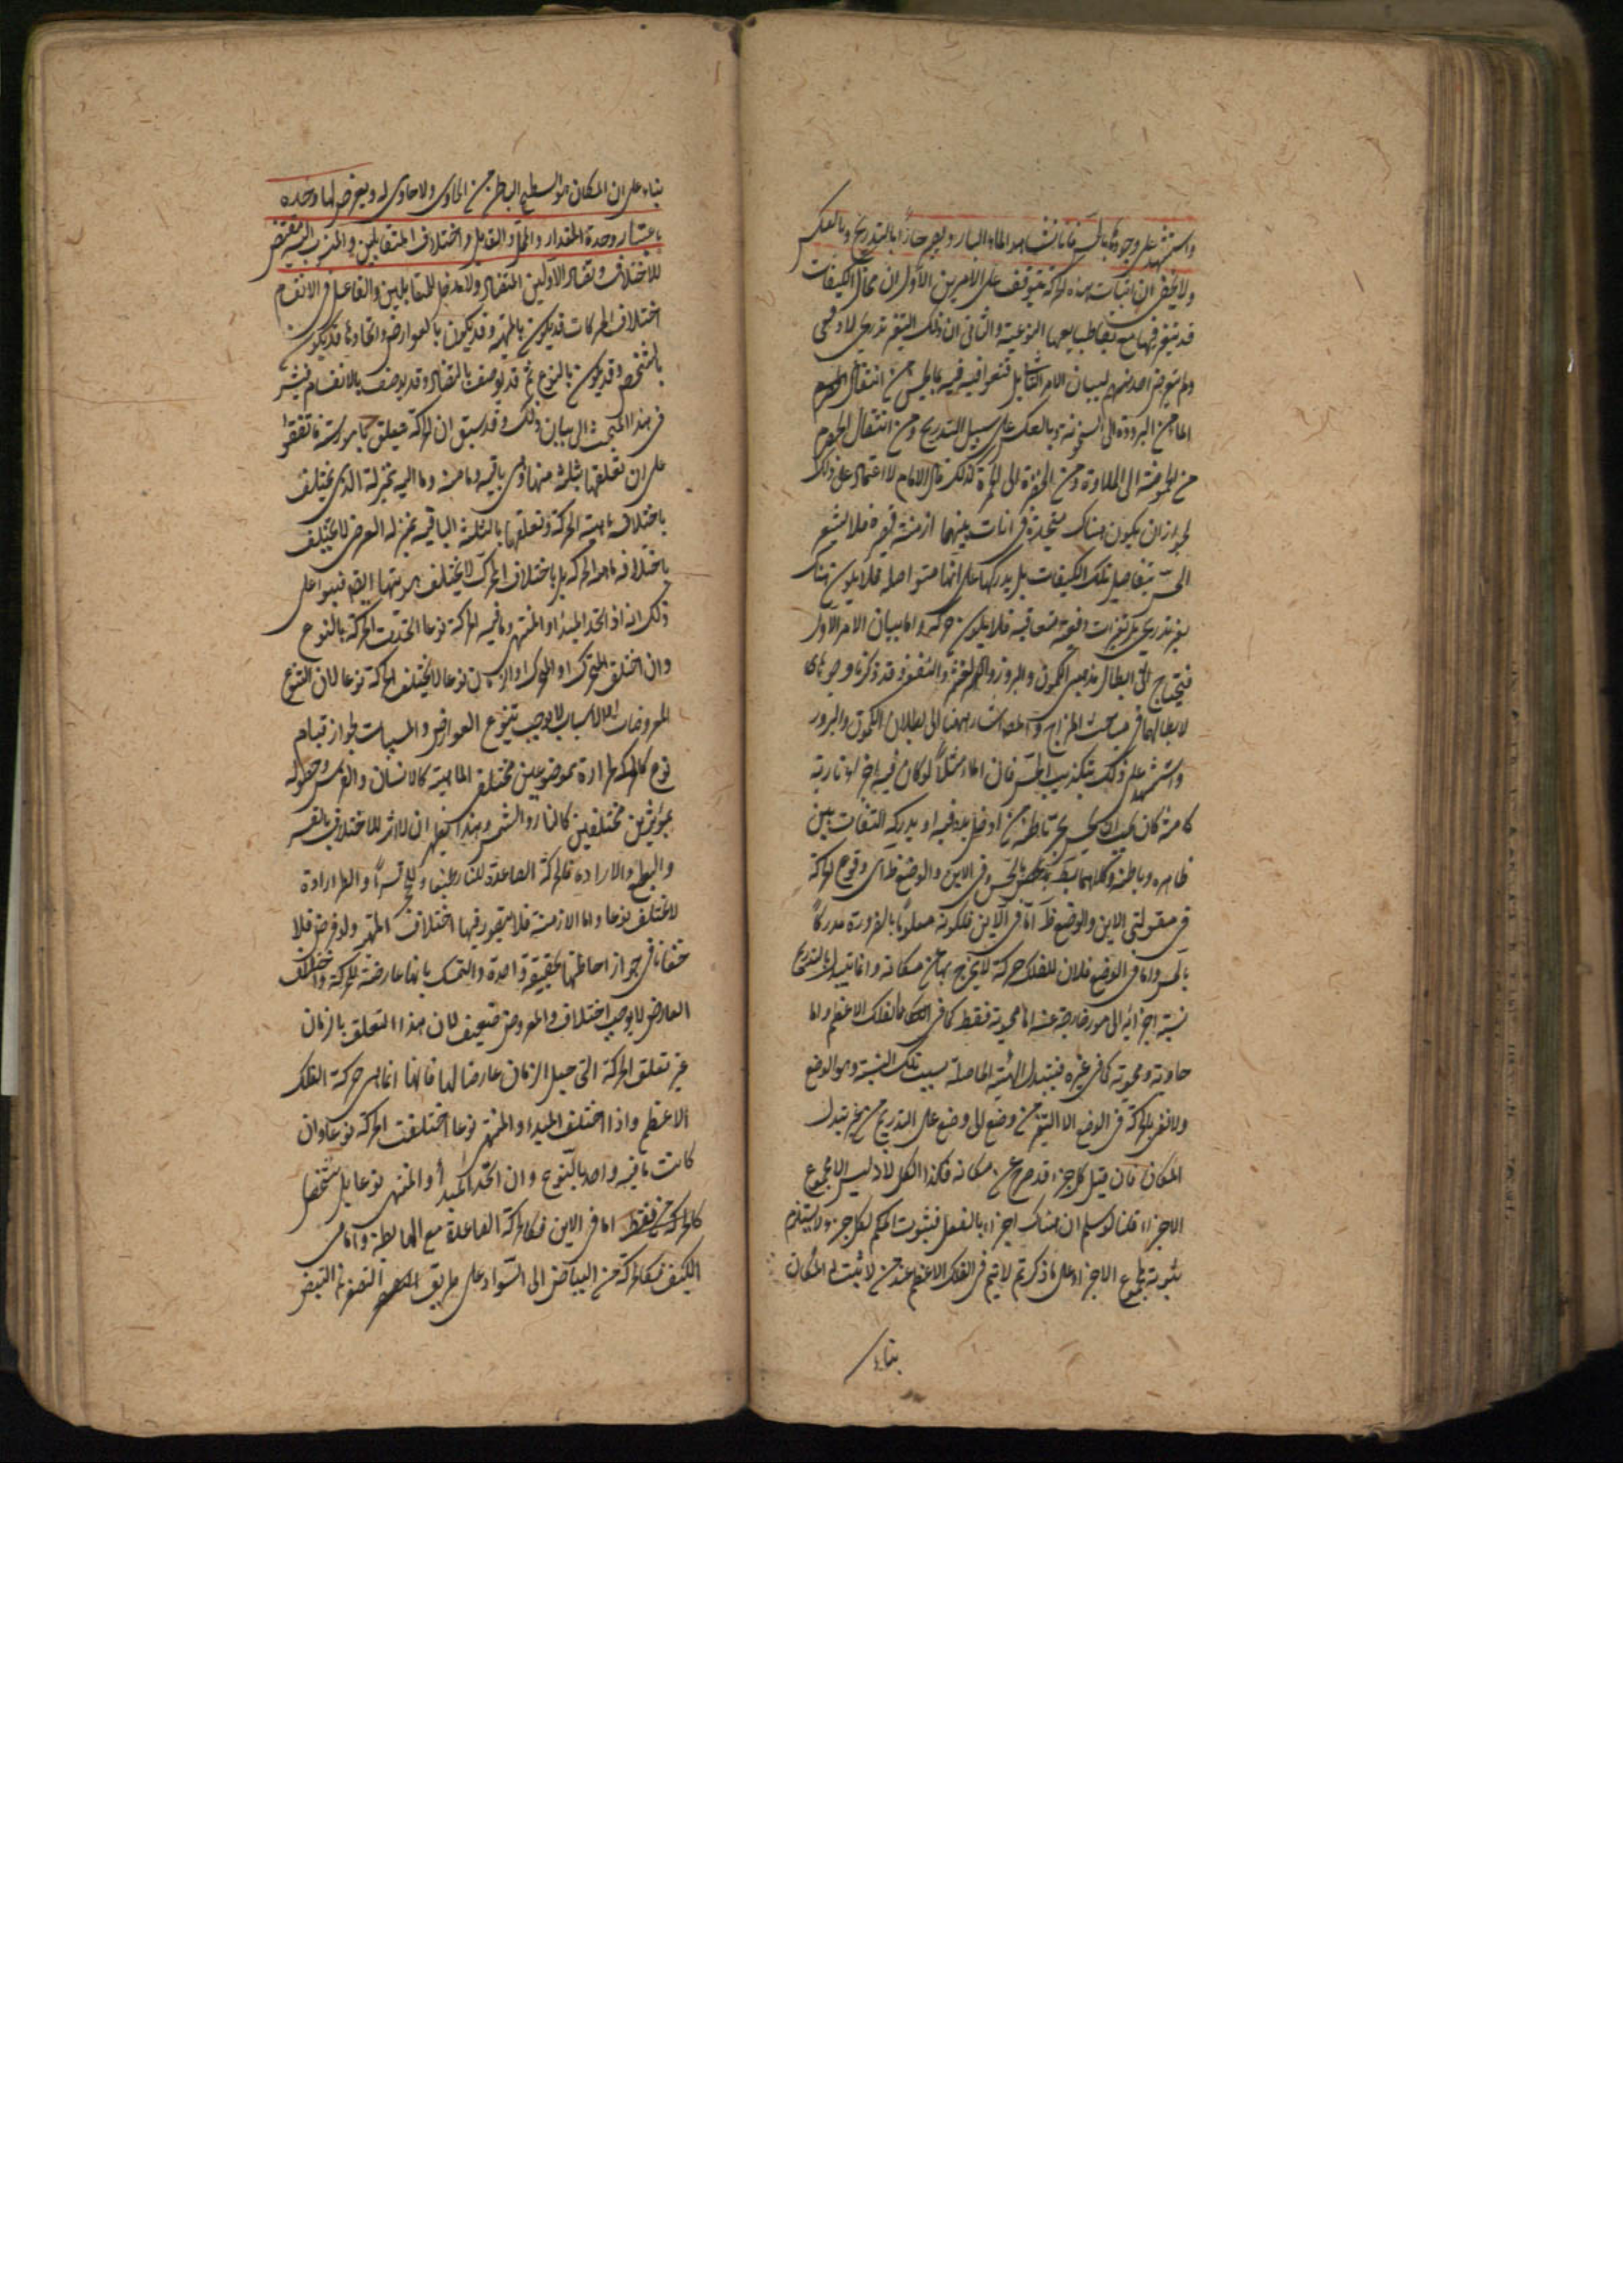 واستشهد على وجودها بالحس فانا نشاهد الماء البارد يصير حارا بالتدريج وبالعكس
ولا يخفى ان اثبات هذه الحركة يتوقف على الامرين الاول ان محال الكيفيات
قد يتغير فيها مع بقاء طبايعها النوعية والثاني ان ذلك التغير تدريجي لا دفعي
ولم يتعرض احد منهم لبيان الامر الثاني بل قنعوا فيه بما يحس من انتقال
الماء من البرودة الى السخونة وبالعكس على سبيل التدريج ومن انتقال الحصرم
من الحموضة الى الحلاوة ومن الخضرة الى الحمرة كذلك قال الامام لا اعتماد على ذلك
لجواز ان يكون هناك متجددة في انات بينها ازمنة قصيرة فلا يشعر
الحس بتفاصيل تلك الكيفيات بل يدركها على انها متواصلة فلا يكون هناك
تغير تدريجي بل تغيرات دفعية متعاقبة فلا يكون حركة واما بيان الامر الاول
فيحتاج الى ابطال مذهبي الكمون والبروز والنفوذ وقد ذكرنا وجوها
لابطالها في مباحث المزاج والمص اشار ههنا الى بطلان الكمون والبروز
واستشهد على ذلك بتكذيب الحس فان الماء مثلا لو كان فيه اجزاء نارية
كامنة كان يجب ان يحس بحر باطنه من ادخل يده فيه او يدرك التفاوت بين
ظاهره وباطنه وكلاهما وفي الاين والوضع ظ اي وقوع الحركة
في مقولتي الاين والوضع ظ اما في الاين فلكونه معلوما بالضرورة مدركا
بالحس واما في الوضع فلان للفلك حركة لا يخرج بها عن مكانه وانما يتبدل بالتدريج
نسبة اجزائه الى امور خارجة عنه اما محوية فقط كما في الفلك الاعظم واما
حاوية ومحوية كما في غيره فيتبدل الهيئة الحاصلة بسبب تلك النسبة وهو الوضع
ولا نعني بالحركة في الوضع الا التغير من وضع الى وضع على التدريج من غير تبدل
المكان فان قيل كل جزء قد خرج عن مكانه فكذا الكل لانه ليس الا مجموع
الاجزاء قلنا لو سلم ان هناك اجزاء بالفعل فثبوت الحكم لكل جزء لا يستلزم
ثبوته لمجموع الاجزاء وعلى ما ذكرتم لا يتم في الفلك الاعظم عند من لا يثبت له المكان
بناء
بناء على ان المكان هو السطح الباطن من الحاوي ولا حاوي له ويعرض لها وحدة
باعتبار وحدة المقدار والمحل والقابل واختلاف المتقابلين والمنسوب اليه مقتض
للاختلاف وتضاد الاولين التضاد ولا مدخل للمتقابلين والفاعل في الانقسام
اختلاف الحركات قد يكون بالمهية وقد يكون بالعوارض واتحادها قد يكون
بالشخص وقد يكون بالنوع ثم قد يوصف بالتضاد وقد يوصف بالانقسام فيشير
في هذا المبحث الى بيان ذلك وقد سبق ان الحركة متعلق بامور ستة فاتفقوا
على ان تعلقها بثلثة منها وهي ما فيه وما منه وما اليه بمنزلة الذاتي يختلف
باختلافه ماهية الحركة وتعلقها بالثلثة الباقية بمنزلة العرض لا يختلف
باختلافه ماهية الحركة بل باختلاف المحرك لا يختلف هويتها ايضا فبنوا على
ذلك انه اذا اتحد المبدا والمنتهى وما فيه الحركة نوعا اتحدت الحركة بالنوع
وان اختلف المتحرك او المحرك والزمان نوعا لا يختلف الحركة نوعا لان تنوع
المعروضات او الاسباب لا يوجب تنوع العوارض والمسببات لجواز قيام
نوع كالحرارة بموضوعين مختلفي الماهية كالانسان والفرس وحصوله
بمؤثرين مختلفين كالنار والشمس وبهذا يظهر ان لا اثر للاختلاف بالقسر
والطبع والارادة فالحركة الصاعدة للنار طبعا وللحجر قسرا وللطير ارادة
لا يختلف نوعا واما الازمنة فلا يتصور فيها اختلاف المهية ولو فرض فلا
خفاء في جواز احاطتها بحقيقة واحدة والتمسك بانها عارضة للحركة واختلاف
العارض لا يوجب اختلاف المعروض ضعيف لان هذا التعلق بالزمان
غير تعلق الحركة التي جعل الزمان عارضا لها فانها انما هي حركة الفلك
الاعظم واذا اختلف المبدا او المنتهى نوعا اختلفت الحركة نوعا وان
كانت ما فيه واحدا بالنوع وان اتحد المبدأ والمنتهى نوعا بل شخصا
اما في الاين فكالحركة الصاعدة مع الهابطة واما في
الكيف فكالحركة من البياض الى السواد على طريق التصفر ثم